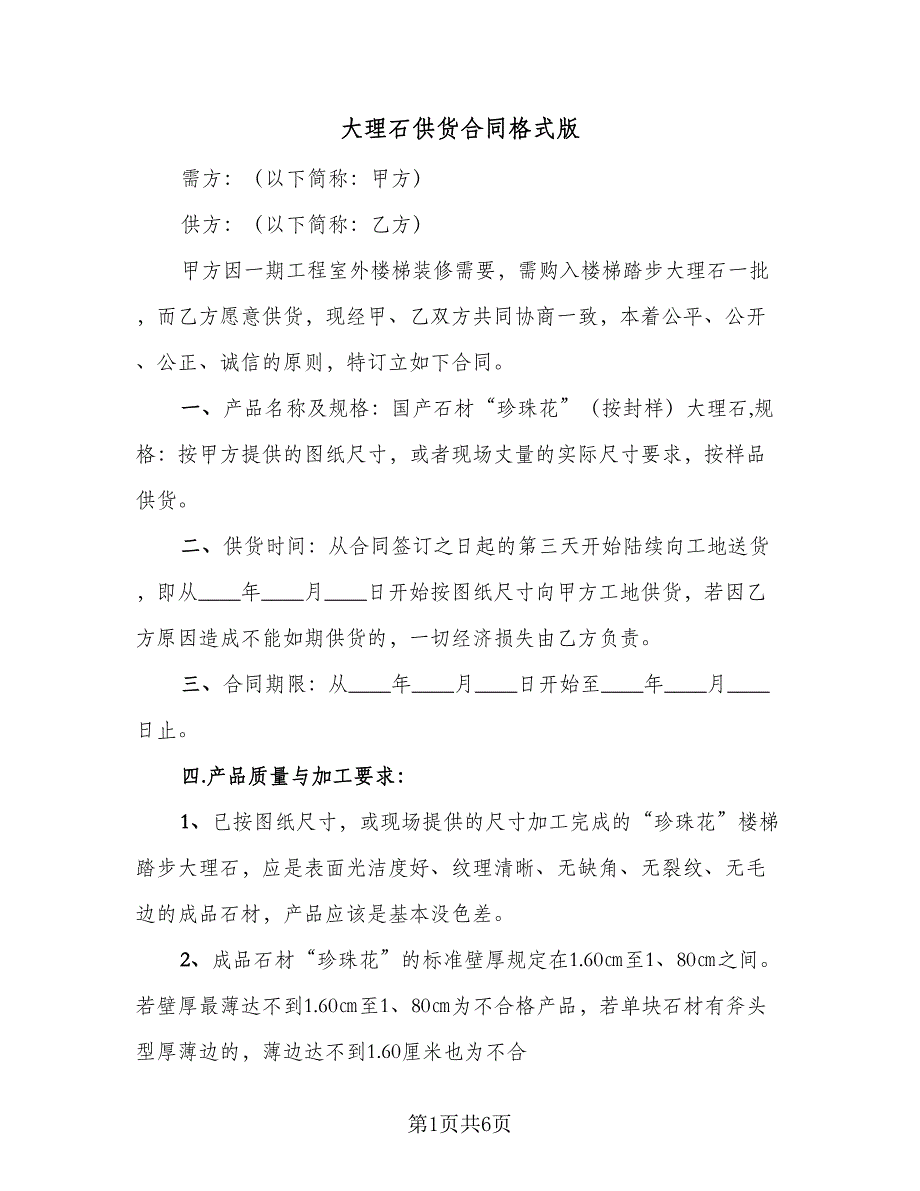 大理石供货合同格式版
需方：（以下简称：甲方）
供方：（以下简称：乙方）
甲方因一期工程室外楼梯装修需要，需购入楼梯踏步大理石一批
，而乙方愿意供货，现经甲、乙双方共同协商一致，本着公平、公开
、公正、诚信的原则，特订立如下合同。
一、产品名称及规格：国产石材“珍珠花”（按封样）大理石,规
格：按甲方提供的图纸尺寸，或者现场丈量的实际尺寸要求，按样品
供货。
二、供货时间：从合同签订之日起的第三天开始陆续向工地送货
，即从____年____月____日开始按图纸尺寸向甲方工地供货，若因乙
方原因造成不能如期供货的，一切经济损失由乙方负责。
三、合同期限：从____年____月____日开始至____年____月____
日止。
四.产品质量与加工要求：
1、已按图纸尺寸，或现场提供的尺寸加工完成的“珍珠花”楼梯
踏步大理石，应是表面光洁度好、纹理清晰、无缺角、无裂纹、无毛
边的成品石材，产品应该是基本没色差。
2、成品石材“珍珠花”的标准壁厚规定在1.60㎝至1、80㎝之间。
若壁厚最薄达不到1.60㎝至1、80㎝为不合格产品，若单块石材有斧头
型厚薄边的，薄边达不到1.60厘米也为不合
第1页共6页